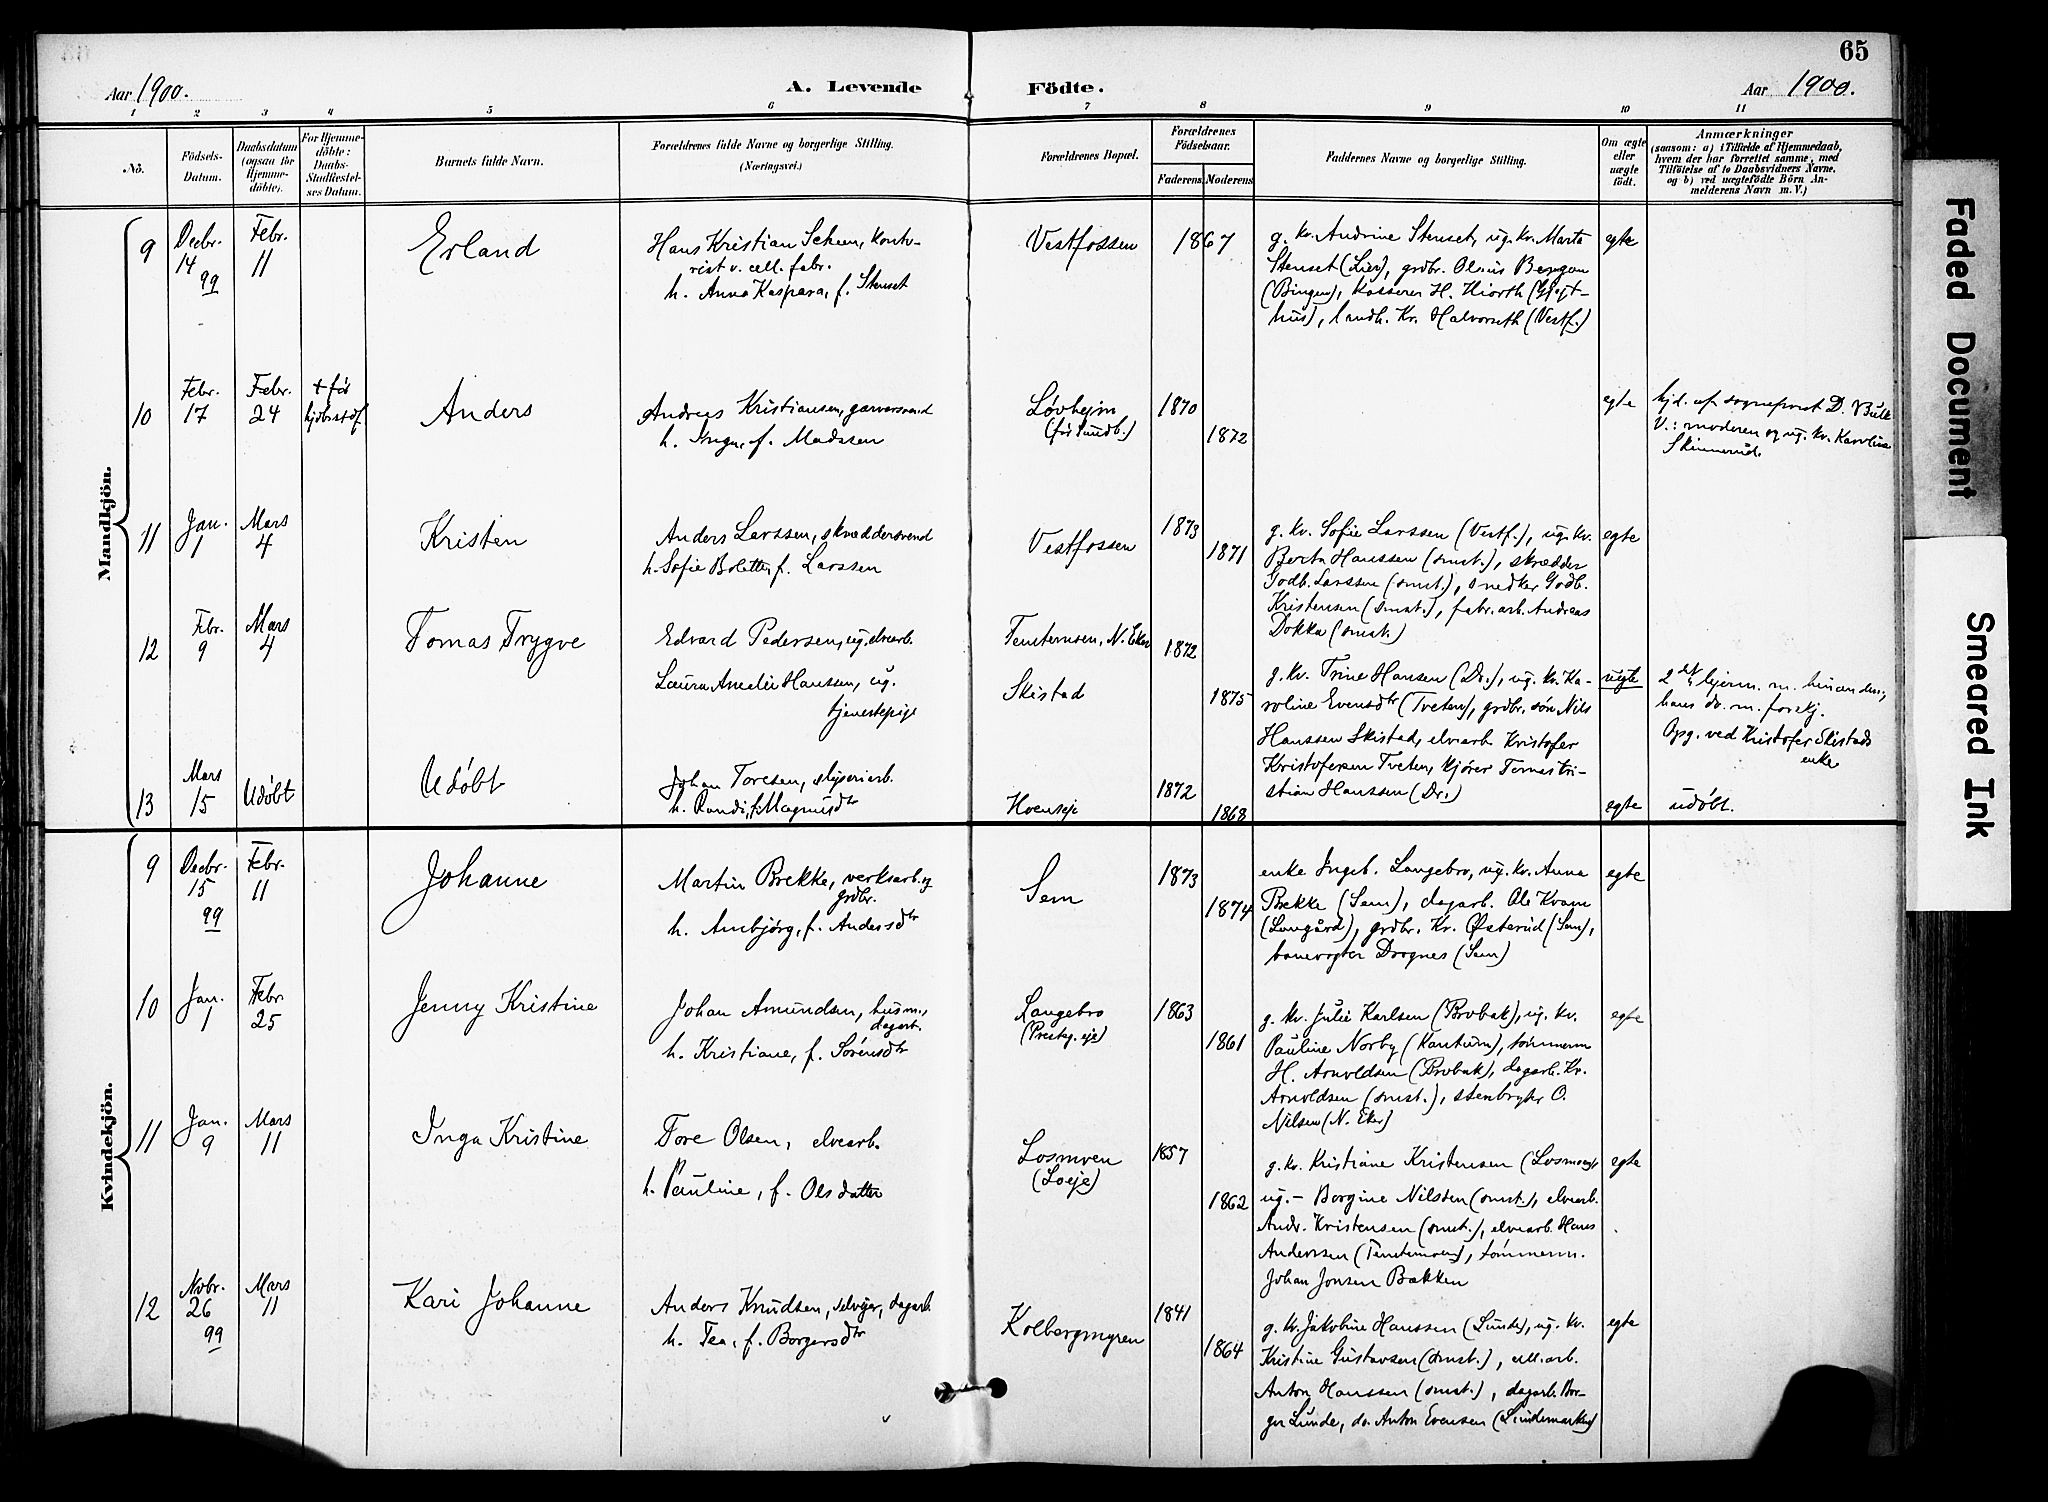 65
Aar 1900.
A. Levende Födte.
Aar 1900.
1 2 3 4 5 6 7 8 9 10 11
No.
Födsels-Datum.
Daabsdatum (ogsaa for Hjemmedöbte).
For Hjemmedöbte: Daabs-Stadfæstelses Datum.
Barnets fulde Navn.
Forældrenes fulde Navne og borgerlige Stilling.
(Næringsvei.)
Forældrenes Bopæl.
Forældrenes Födselsaar.
Faderens Moderens
Faddernes Navne og borgerlige Stilling.
Om ægte eller uægte födt.
Anmærkninger
(saasom: a) i Tilfælde af Hjemmedaab, hvem der har forrettet samme, med Tilföielse af to Daabsvidners Navne, og b) ved uægtefödte Börn Anmelderens Navn m. V.)
Mandkjön.
9
Decbr. 14 99
Febr. 11
Erland
Hans Kristian Scheen, konto-
rist v. cell. fabr.
h. Anna Kaspara, f. Stenset
Vestfossen
1867
g. kv. Andrine Stenset, ug. kv. Marta
Stenset (Lier), grdbr. Olaus Bergan
(Bingen), kasserer H. Hiorth
hus), landh. Kr. Halvorseth (Vestf.)
egte
10
Febr. 17
Febr. 24
+ før
hjdbstdf.
Anders
Andreas Kristiansen, garversvend
h. Inga, f. Madssen
Løvhejm
(før Sundb.)
1870
1872
egte
hjd. af sogneprest D. Bull
V.: moderen og ug. kv. Karoline
Skinnerud.
11
Jan. 1
Mars 4
Kristen
Anders Larssen, skræddersvend
h. Sofie Bolette, f. Larssen
Vestfossen
1873
1871
g. kv. Sofie Larssen (Vestf.), ug. kv.
Berta Hanssen (smst.), skrædder
Godb. Larssen (smst.), snedker Godb.
Kristensen (smst.), fabr. arb. Andreas
Dokka (smst.)
egte
12
Febr. 9
Mars 4
Tomas Trygve
Edvard Pedersen, ug. elvearb.
Laura Amelie Hanssen, ug.
tjenestepige
Tenternsen, N. Eker
Skistad
1872
1875
g. kv. Trine Hansen (Dr.), ug. kv. Ka-
roline Evensdtr (Tveten), grdbr. søn Nils
Hanssen Skistad, elvearb. Kristofer
Kristofersen Tveten, kjører Tomas Kri-
stian Hanssen (Dr.)
uegte
2den hjem. m. hinanden,
hans do. m. forskj.
Opg. ved Kristofer Skistads
enke
13
Mars 15
Udøbt
Udøbt
Johan Toresen, sliperiarb.
h. Randi, f. Magnusdtr
Hoenseje
1872
1868
egte
udøbt.
Kvindekjön.
9
Decbr. 15 99
Febr. 11
Johanne
Martin Brekke, verksarb. og
grdbr.
h. Anbjørg, f. Andersdtr
Sem
1873
1874
enke Ingeb. Langebro, ug. kv. Anna
Brekke (Sem), dagarb. Ole Kvam
(Langård), grdbr. Kr. Østerud (Sem),
banevogter Drognes (Sem)
egte
10
Jan. 1
Febr. 25
Jenny Kristine
Johan Amundsen, husm.,
dagarb.
h. Kristiane, f. Sørensdtr
Langebro
(Presteg. eje)
1863
1861
g. kv. Julie Karlsen (Brobak), ug. kv.
Pauline Norby (Kantum), tømmerm
H. Arnoldsen (Brobak), dagarb. Kr.
Arnoldsen (smst.), stenbryter O.
Nilsen (N. Eker)
egte
11
Jan. 9
Mars 11
Inga Kristine
Tore Olsen, elvearb.
h. Pauline, f. Olsdatter
Losmoen
(Loeje)
1857
1862
g. kv. Kristiane Kristensen (Losmoen),
ug. - Borgine Nilssen (smst.), elvearb.
Andr. Kristensen (smst.), elvearb. Hans
Anderssen (Tenternoen), tømmerm.
Johan Jonsen Bakken
egte
12
Novbr. 26 99
Mars 11
Kari Johanne
Anders Knudsen, selvejer, dagarb.
h. Tea, f. Borgersdtr
Kolbergmyren
1841
1864
g. kv. Jakobine Hanssen (Lunde), ug. kv.
Kristine Gustavsen (smst.), cell. arb.
Anton Hanssen (smst.), dagarb. Bor-
ger Lunde, do. Anton Evensen (Lindemarken)
egte
Faded Document
Smeared Ink